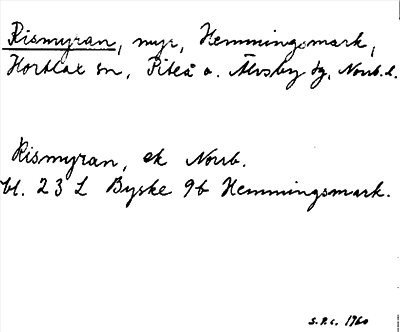 Rismyran, myr, Hemmingsmark,
Hortlax sn, Piteå o. Älvsby tg, Norrb. l.
Rismyran, ek Norrb.
bl. 23 L Byske 9b Hemmingsmark.
S.P.C. 1960